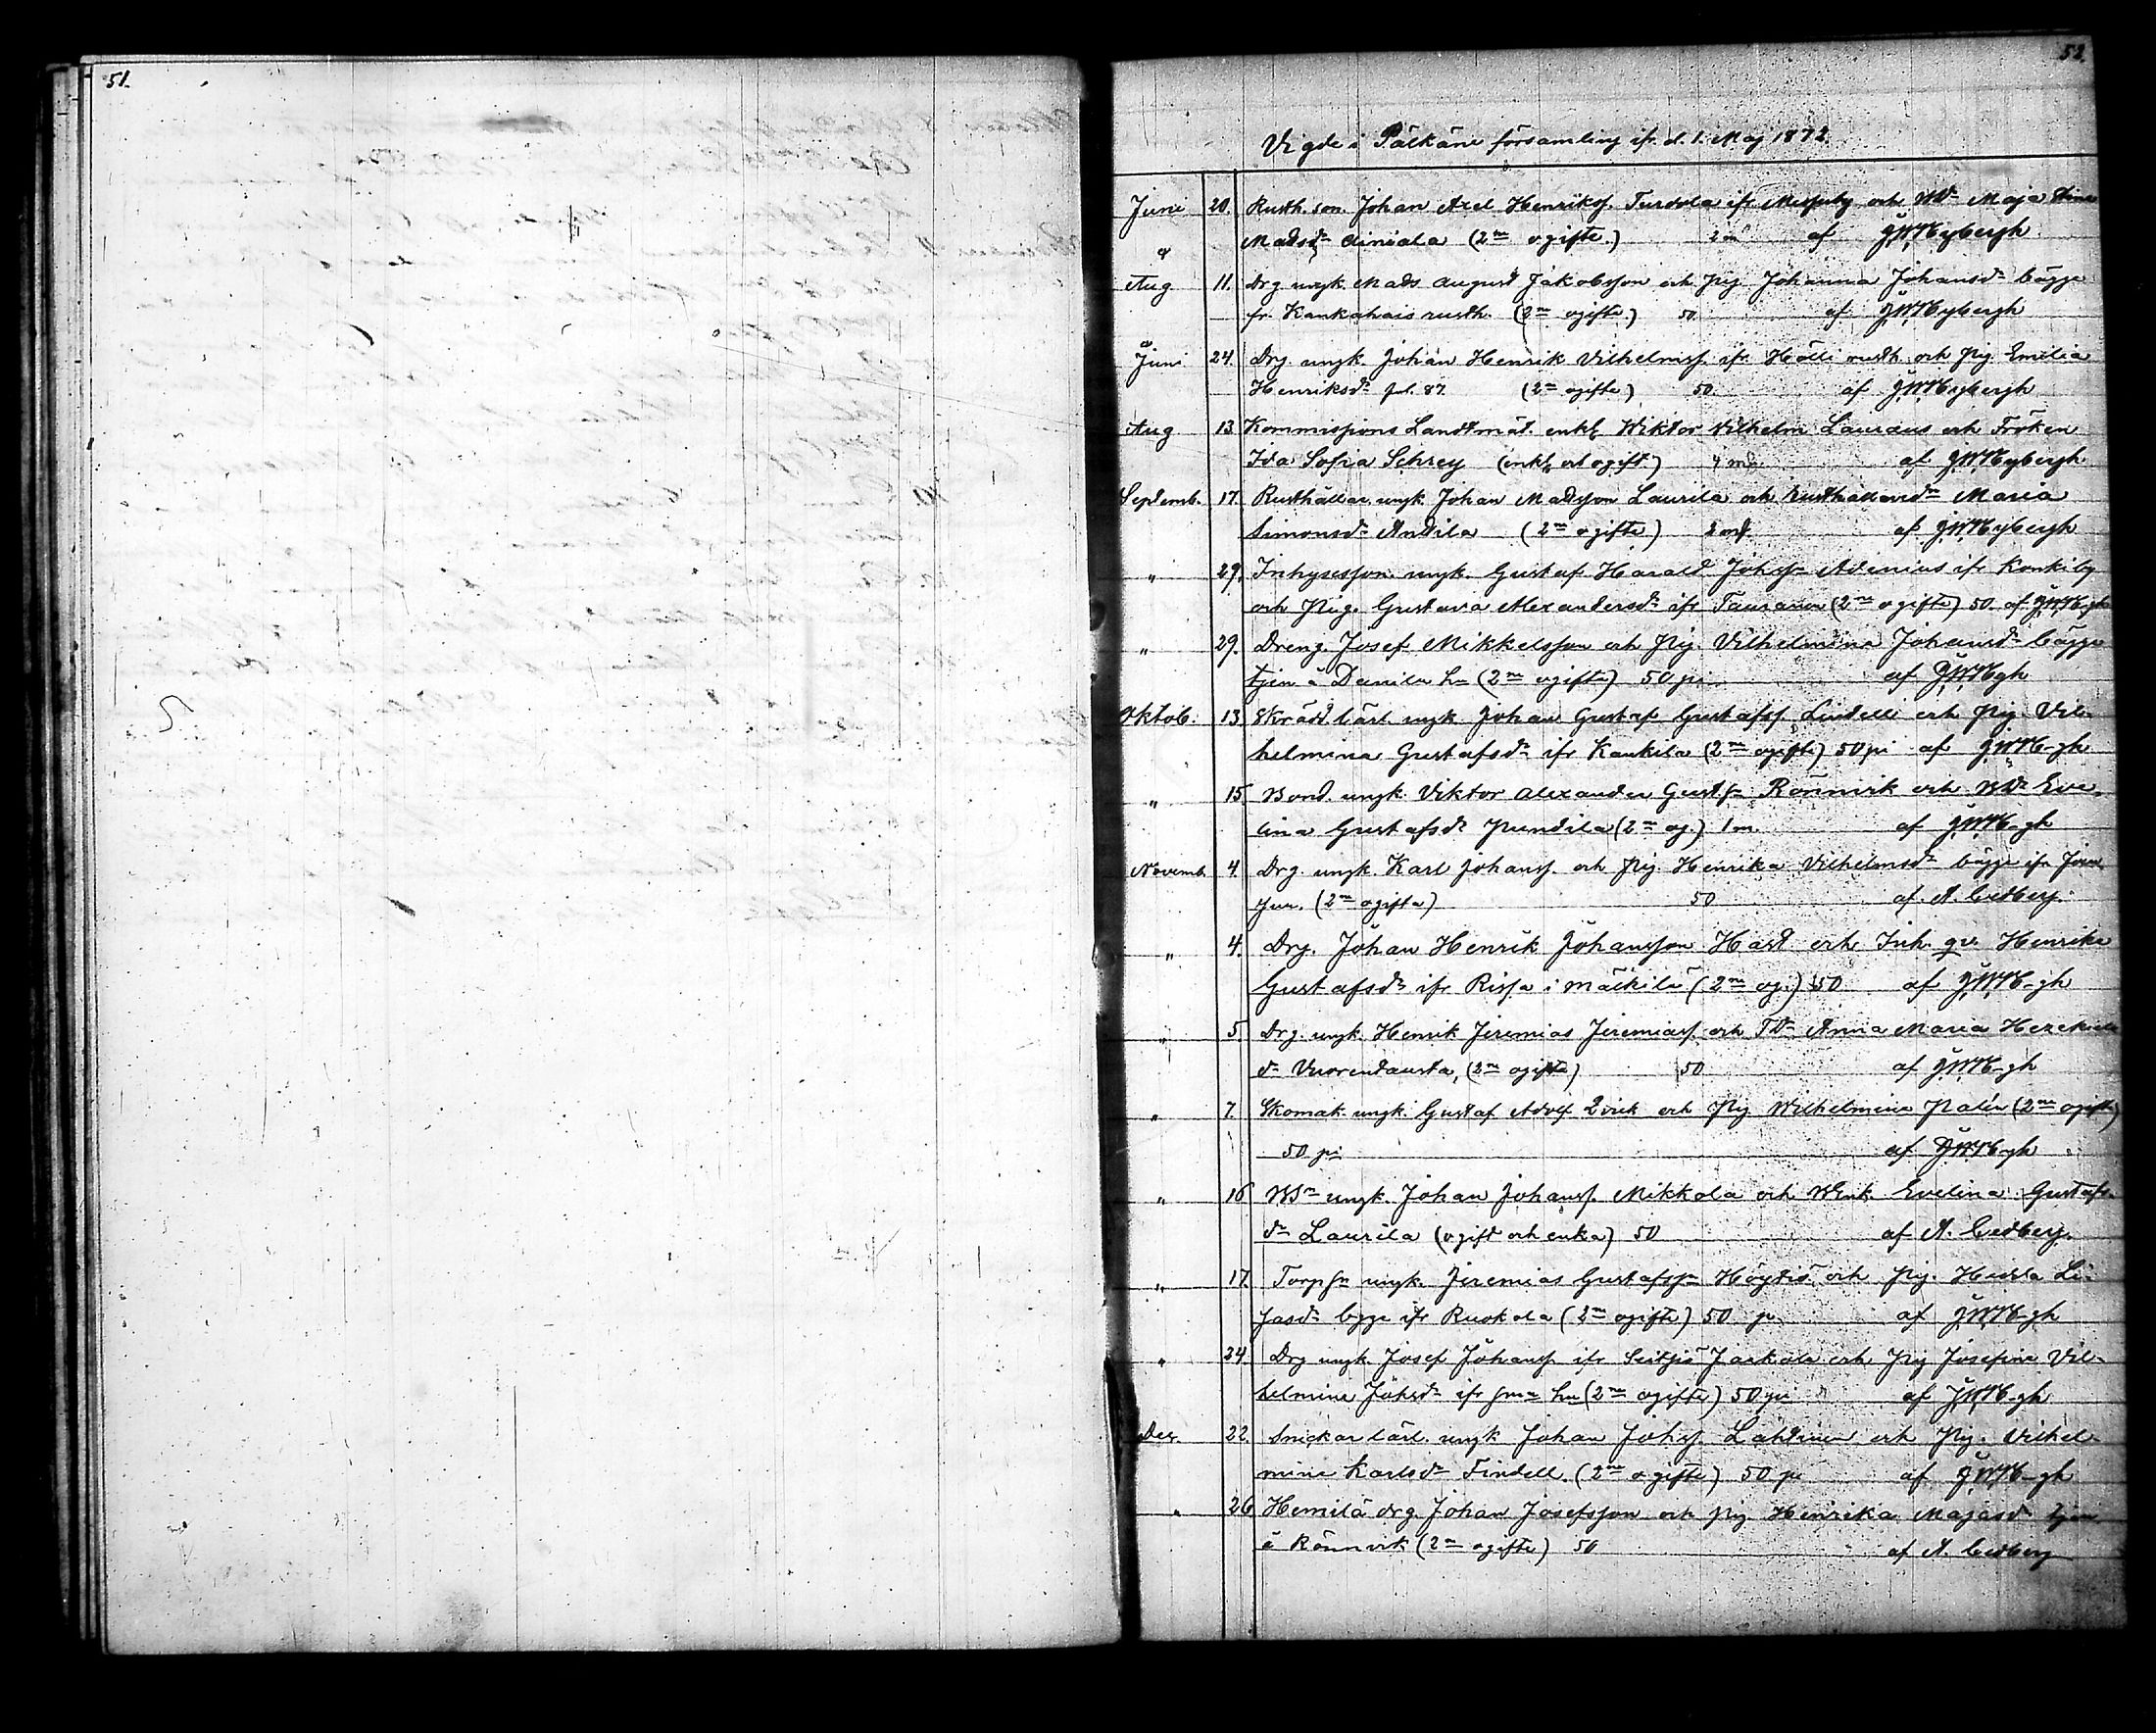 51.
52.
Vigde i Pälkäne församling ifr. d. 1. Maj 1872.
Juni 20. Rusth. son. Johan Axel Henrikss. Turvola ifr och Wdr Maja Stina
Madsdr Äiniälä (2ne ogifte.) 2 m af J.W.Hybergh
Aug 11. Drg ungk. Mads August Jakobsson och Pig. Johanna Johansd:r bägge
fr. Kankahais rusth. (2ne ogifte.) 50 af J.W.Hybergh
Juni 24. Drg. ungk. Johan Henrik Vilhelmss. ifr. Hölli rusth. och Pig. Emilia
Henriksdr pl. 87. (2ne ogifte) 50. af J.W.Hybergh
Aug 13. Kommissions Landtmät. enkl. Wiktor Vilhelm Lauraus och Fröken
Ida Sofia Schrey (enkl. och ogift.) 4 m af J.W.Hybergh
Septemb. 17. Rusthållar. ungk. Johan Madsson Laurila och Rusthållaredr Maria
Simonsdr Andila (2ne ogifte) 2 mf. af J.W.Hybergh
" 29. Inhysesson. ungk. Gustaf Harald Johss:n Adenius ifr Konkiby
och Pig. Gustava Alexandersdr ifr Tauranen (2ne ogifte) 50 af J.W.H-gh
" 29. Dreng. Josef Mikkelsson och Pig. Vilhelmina Johansdr bägge
tjen å Danila hn (2ne ogifte) 50 pi af J.W.Hgh
Oktob. 13. Skrädd. lärl. ungk Johan Gustaf Gustafss. Lindell och Pig. Vil-
helmina Gustafsdr ifr Kankila (2ne ogifte) 50 pi af J.W.H-gh
" 15 Bond. ungk. Viktor Alexander Gustss:n Rönnvik och Wdr Eve-
lina Gustafsdr Pundila (2ne og.) 1 m. af J.W.H-gh
Novemb. 4. Drg. ungk. Karl Johanss. och Pig. Henrika Vilhelmsdr bägge ifr
(2ne ogifta) 50 af A. Cedberg.
" 4. Drg. Johan Henrik Johansson Hast och Inh. qv. Henrika
Gustafsdr ifr Rissa i Mälkilä (2ne og.) 50 af J.W.H-gh
" 5. Drg. ungk. Henrik Jeremias Jeremiass. och Tdr Anna Maria Hezekiels
dr Vuorentausta, (2ne ogifte) 50 af J.W.H-gh
" 7. Skomak. ungk. Gustaf Adolf Qvick och Pig Wilhelmina Palén (2ne ogifte)
50 pi af J.W.H-gh
" 16 WSn ungk. Johan Johanss. Mikkola och WEnk. Evelina Gustafs-
dr Laurila (ogift och enka) 50 af A. Cedberg.
" 17. Torpsn ungk. Jeremias Gustafss:n Höytiö och Pig. Hedda Li-
sasdr bgge ifr Ruokola (2ne ogifte) 50 p af J.W.H-gh
" 24. Drg ungk. Josef Johanss. ifr Seitjis Jaakola och Pig Josefina Vil-
helmina Johsdr ifr sma hn (2ne ogifte) 50 pi af J.W.H-gh
Dec. 22. Snickar lärl. ungk Johan Johss. Lahtinen och Pig. Vilhel-
mina Karlsdr Findell. (2ne ogifte) 50 p af J.W.H-gh
" 26 Hemilä drg. Johan Josefsson och Pig. Henrika Majasdr tjen
å Rönnvik (2ne ogifte) 50 af A. Cedberg